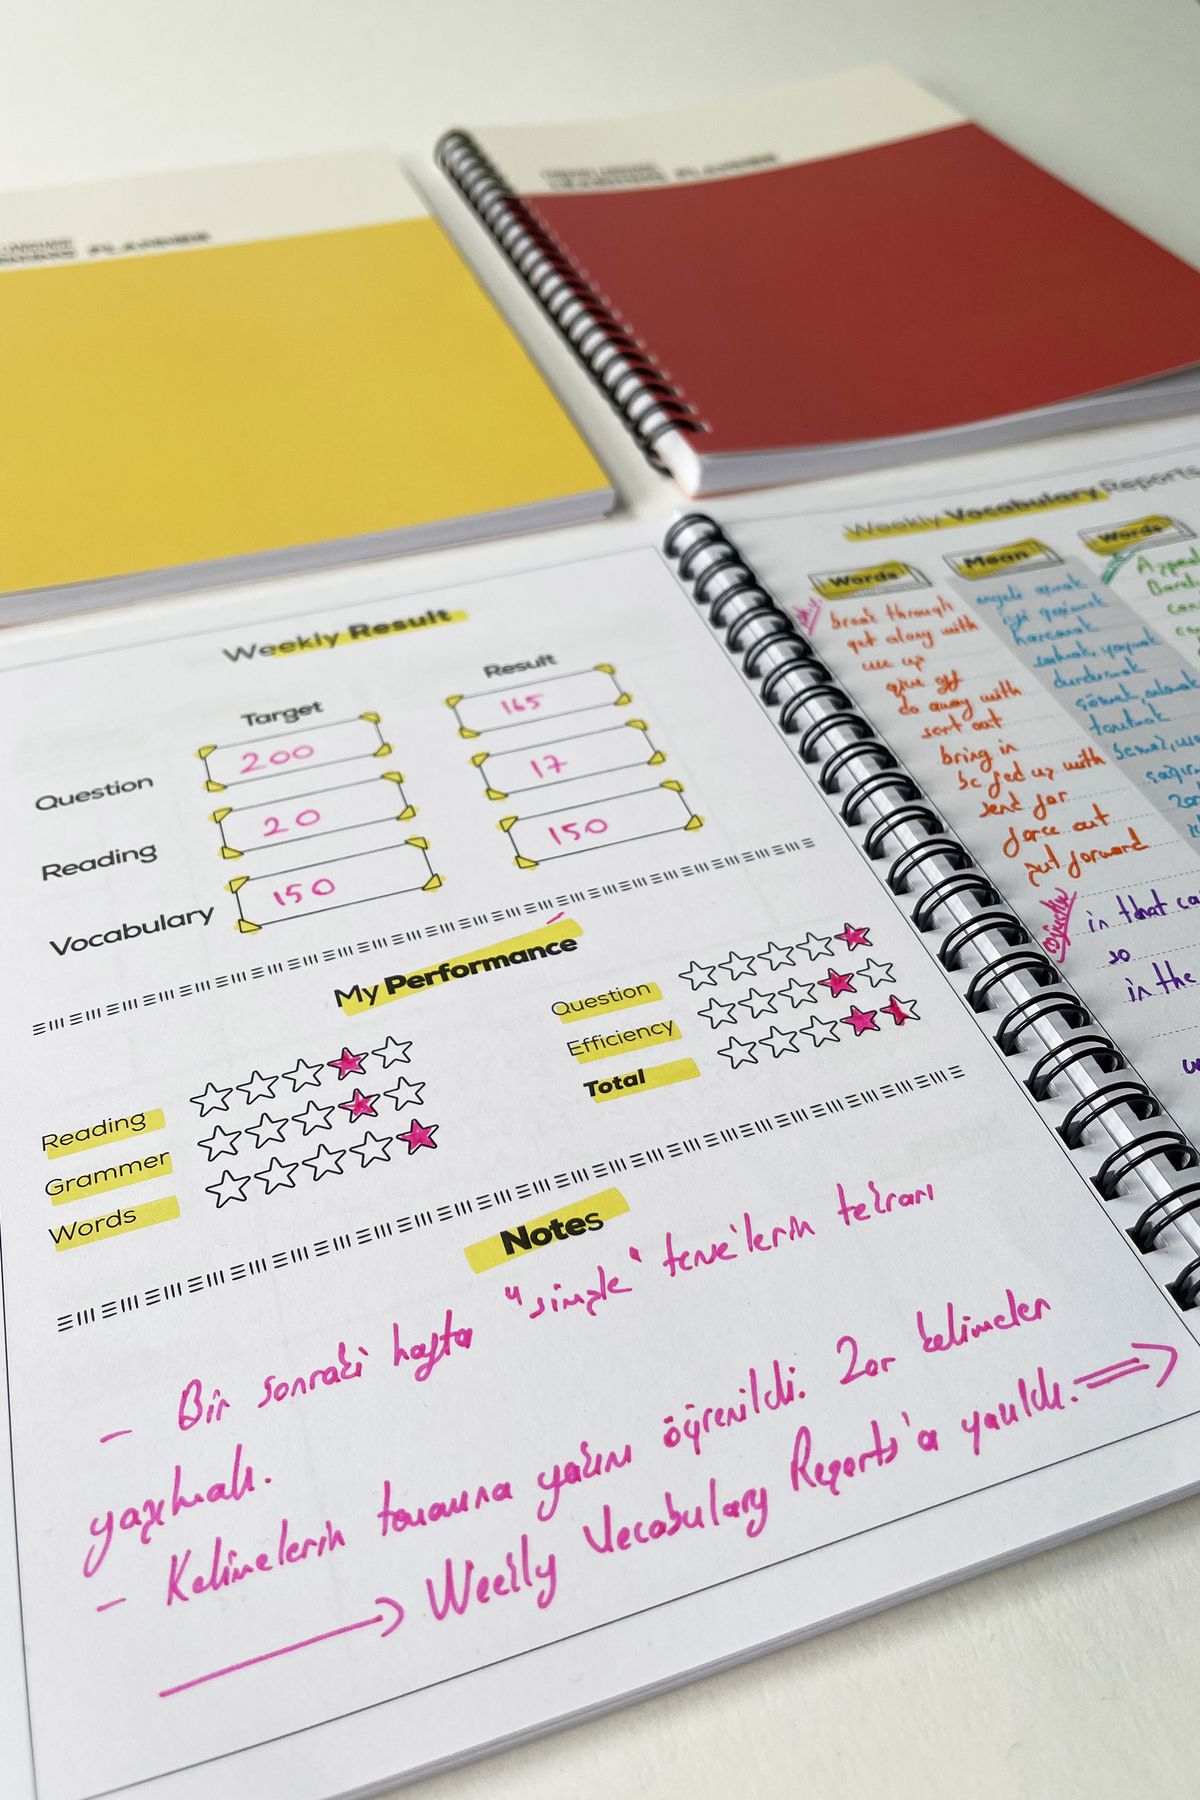 LEARNING PLANNER
Weekly Result
Target
Result
Question
200
165
Reading
20
17
Vocabulary
150
150
My Performance
Reading
Grammer
Words
Question
Efficiency
Total
Notes
- Bir sonraki hafta "simple" tense'lerin tekrarı
yapılmalı.
- Kelimelerin tamamına yakını öğrenildi. Zor kelimeler
Weekly Vocabulary Reports'a yazıldı.
Weekly Vocabulary Reports
Words
Mean
Words
break through
get along with
use up
give off
do away with
sort out
bring in
be fed up with
send for
force out
put forward
harcamak
durdurmak
tanıtmak
in that ca
so
in the